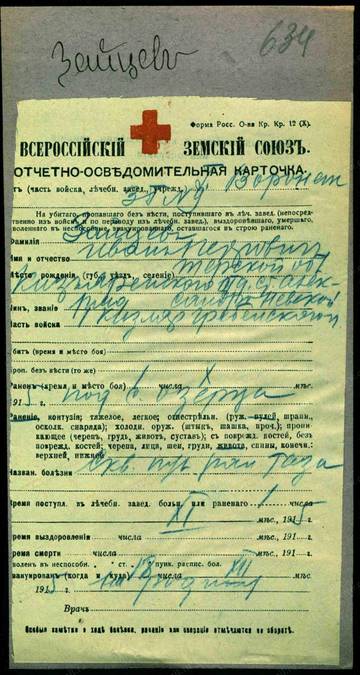 Зайцевъ
634
Форма Росс. О-ва Кр. Кр. 12 (X).
ВСЕРОССІЙСКІЙ ЗЕМСКІЙ СОЮЗЪ.
ОТЧЕТНО-ОСВѢДОМИТЕЛЬНАЯ КАРТОЧКА.
(часть войска, лѣчебн. завед., учрежд.) Воронеж
На убитаго, пропавшаго безъ вѣсти, поступившаго въ лѣч. завед. (непосредственно изъ войскъ и по переводу изъ лѣчебн. завед.), выздоровѣвшаго, умершаго,
уволеннаго въ неспособные, эвакуированнаго, оставшагося въ строю раненаго.
Фамилія Зайцевъ
Имя и отчество Иванъ
Мѣсто рожденія (губ., уѣздъ, селеніе) Терской об
Кизлярскаго
Чинъ, званіе
Часть войска Кизляро Гребенского
Убитъ (время и мѣсто боя)
Проп. безъ вѣсти (то же)
Раненъ (время и мѣсто боя) 1 числа X мѣс.
1915 г. под
Раненіе, контузія: тяжелое, легкое; огнестрѣльн. (руж. пулей, шрапн.,
осколк. снаряда); холодн. оруж. (штыкъ, шашка, проч.); проникающее (черепъ, грудь, животъ, суставъ); съ поврежд. костей, безъ
поврежд. костей; черепа, лица, шеи, груди, живота, спины, конечн.:
верхней, нижней
Назван. болѣзни Скв. пул. ран. таза
Время поступл. въ лѣчебн. завед. больн. или раненаго 1 числа
XI мѣс., 1915 г.
Время выздоровленія числа мѣс., 191 г.
Время смерти числа мѣс., 191 г.
Уволенъ въ неспособн. ст. пункт. распис. бол.
Эвакуированъ (когда и куда) XII
1915 г. на родину
Врачъ
Особыя замѣтки о ходѣ болѣзни, раненія или операціи отмѣчаются на оборотѣ.